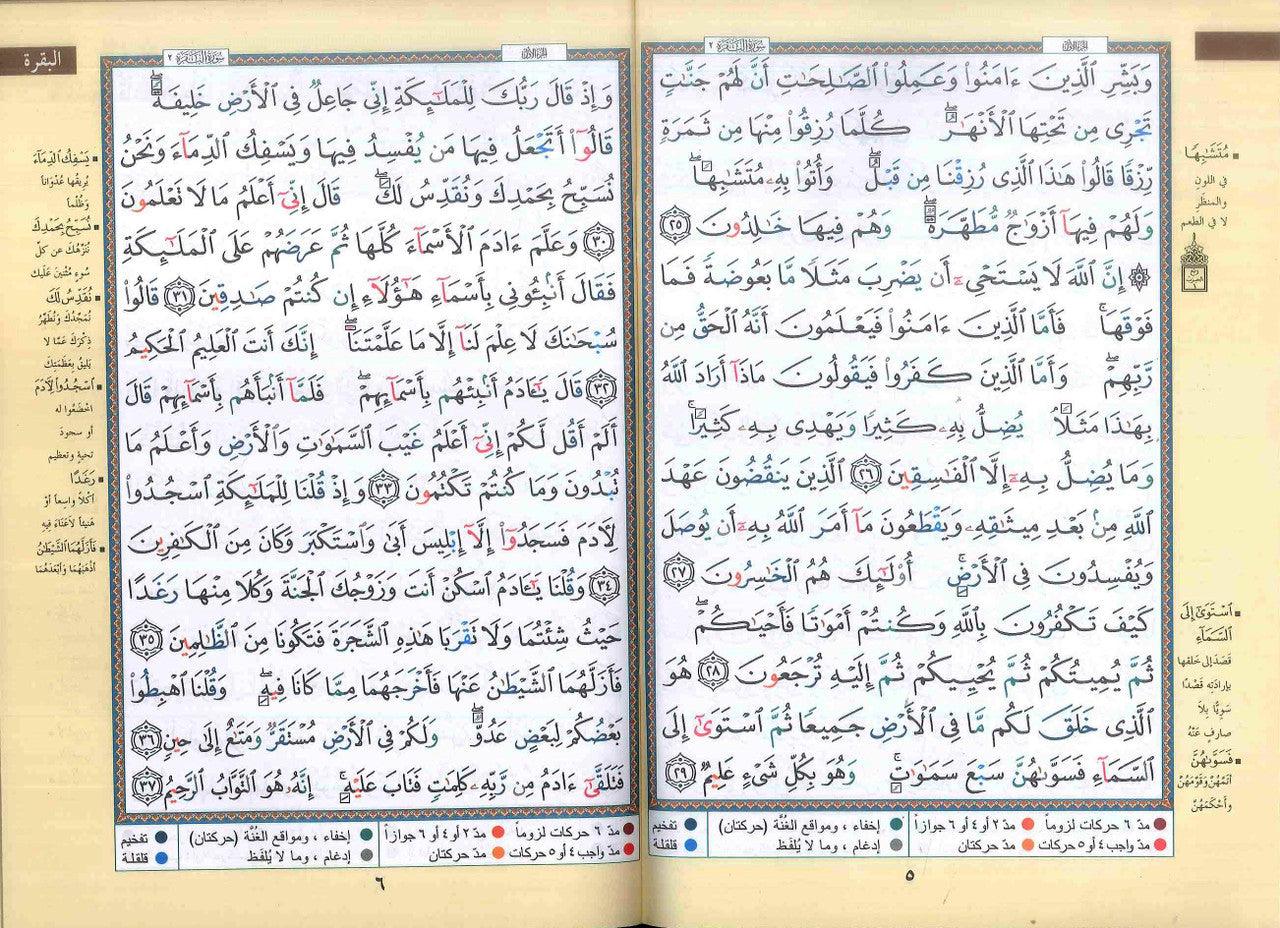 سورة البقرة ٢
الجزء الأول
وَبَشِّرِ ٱلَّذِينَ ءَامَنُوا۟ وَعَمِلُوا۟ ٱلصَّـٰلِحَـٰتِ أَنَّ لَهُمْ جَنَّـٰتٍ
تَجْرِى مِن تَحْتِهَا ٱلْأَنْهَـٰرُ ۖ كُلَّمَا رُزِقُوا۟ مِنْهَا مِن ثَمَرَةٍ
رِّزْقًا قَالُوا۟ هَـٰذَا ٱلَّذِى رُزِقْنَا مِن قَبْلُ ۖ وَأُتُوا۟ بِهِۦ مُتَشَـٰبِهًا ۖ
وَلَهُمْ فِيهَآ أَزْوَٰجٌ مُّطَهَّرَةٌ ۖ وَهُمْ فِيهَا خَـٰلِدُونَ ٢٥
۞ إِنَّ ٱللَّهَ لَا يَسْتَحْىِۦٓ أَن يَضْرِبَ مَثَلًا مَّا بَعُوضَةً فَمَا
فَوْقَهَا ۚ فَأَمَّا ٱلَّذِينَ ءَامَنُوا۟ فَيَعْلَمُونَ أَنَّهُ ٱلْحَقُّ مِن
رَّبِّهِمْ ۖ وَأَمَّا ٱلَّذِينَ كَفَرُوا۟ فَيَقُولُونَ مَاذَآ أَرَادَ ٱللَّهُ
بِهَـٰذَا مَثَلًا ۘ يُضِلُّ بِهِۦ كَثِيرًا وَيَهْدِى بِهِۦ كَثِيرًا ۚ
وَمَا يُضِلُّ بِهِۦٓ إِلَّا ٱلْفَـٰسِقِينَ ٢٦ ٱلَّذِينَ يَنقُضُونَ عَهْدَ
ٱللَّهِ مِنۢ بَعْدِ مِيثَـٰقِهِۦ وَيَقْطَعُونَ مَآ أَمَرَ ٱللَّهُ بِهِۦٓ أَن يُوصَلَ
وَيُفْسِدُونَ فِى ٱلْأَرْضِ ۚ أُو۟لَـٰٓئِكَ هُمُ ٱلْخَـٰسِرُونَ ٢٧
كَيْفَ تَكْفُرُونَ بِٱللَّهِ وَكُنتُمْ أَمْوَٰتًا فَأَحْيَـٰكُمْ ۖ
ثُمَّ يُمِيتُكُمْ ثُمَّ يُحْيِيكُمْ ثُمَّ إِلَيْهِ تُرْجَعُونَ ٢٨ هُوَ
ٱلَّذِى خَلَقَ لَكُم مَّا فِى ٱلْأَرْضِ جَمِيعًا ثُمَّ ٱسْتَوَىٰٓ إِلَى
ٱلسَّمَآءِ فَسَوَّىٰهُنَّ سَبْعَ سَمَـٰوَٰتٍ ۚ وَهُوَ بِكُلِّ شَىْءٍ عَلِيمٌ ٢٩
مُتَشَـٰبِهًا
في اللون
والمنظر
لا في الطعم
ٱسْتَوَىٰٓ إِلَى
ٱلسَّمَآءِ
قَصَدَ إلى خلقها
بإرادته قَصْدًا
سَوِيًّا بلا
صارِفٍ عَنْهُ
فَسَوَّىٰهُنَّ
أتمّهُنّ وَقَوّمَهُنّ
وأحْكَمَهُنّ
مدّ ٦ حركات لزوماً
مدّ ٢ أو ٤ أو ٦ جوازاً
إخفاء ، ومواقع الغُنّة (حركتان)
تفخيم
مدّ واجب ٤ أو ٥ حركات
مدّ حركتان
إدغام ، وما لا يُلفَظ
قلقلة
٥
البقرة
سورة البقرة ٢
الجزء الأول
وَإِذْ قَالَ رَبُّكَ لِلْمَلَـٰٓئِكَةِ إِنِّى جَاعِلٌ فِى ٱلْأَرْضِ خَلِيفَةً ۖ
قَالُوٓا۟ أَتَجْعَلُ فِيهَا مَن يُفْسِدُ فِيهَا وَيَسْفِكُ ٱلدِّمَآءَ وَنَحْنُ
نُسَبِّحُ بِحَمْدِكَ وَنُقَدِّسُ لَكَ ۖ قَالَ إِنِّىٓ أَعْلَمُ مَا لَا تَعْلَمُونَ
٣٠ وَعَلَّمَ ءَادَمَ ٱلْأَسْمَآءَ كُلَّهَا ثُمَّ عَرَضَهُمْ عَلَى ٱلْمَلَـٰٓئِكَةِ
فَقَالَ أَنۢبِـُٔونِى بِأَسْمَآءِ هَـٰٓؤُلَآءِ إِن كُنتُمْ صَـٰدِقِينَ ٣١ قَالُوا۟
سُبْحَـٰنَكَ لَا عِلْمَ لَنَآ إِلَّا مَا عَلَّمْتَنَآ ۖ إِنَّكَ أَنتَ ٱلْعَلِيمُ ٱلْحَكِيمُ
٣٢ قَالَ يَـٰٓـَٔادَمُ أَنۢبِئْهُم بِأَسْمَآئِهِمْ ۖ فَلَمَّآ أَنۢبَأَهُم بِأَسْمَآئِهِمْ قَالَ
أَلَمْ أَقُل لَّكُمْ إِنِّىٓ أَعْلَمُ غَيْبَ ٱلسَّمَـٰوَٰتِ وَٱلْأَرْضِ وَأَعْلَمُ مَا
تُبْدُونَ وَمَا كُنتُمْ تَكْتُمُونَ ٣٣ وَإِذْ قُلْنَا لِلْمَلَـٰٓئِكَةِ ٱسْجُدُوا۟
لِـَٔادَمَ فَسَجَدُوٓا۟ إِلَّآ إِبْلِيسَ أَبَىٰ وَٱسْتَكْبَرَ وَكَانَ مِنَ ٱلْكَـٰفِرِينَ
٣٤ وَقُلْنَا يَـٰٓـَٔادَمُ ٱسْكُنْ أَنتَ وَزَوْجُكَ ٱلْجَنَّةَ وَكُلَا مِنْهَا رَغَدًا
حَيْثُ شِئْتُمَا وَلَا تَقْرَبَا هَـٰذِهِ ٱلشَّجَرَةَ فَتَكُونَا مِنَ ٱلظَّـٰلِمِينَ ٣٥
فَأَزَلَّهُمَا ٱلشَّيْطَـٰنُ عَنْهَا فَأَخْرَجَهُمَا مِمَّا كَانَا فِيهِ ۖ وَقُلْنَا ٱهْبِطُوا۟
بَعْضُكُمْ لِبَعْضٍ عَدُوٌّ ۖ وَلَكُمْ فِى ٱلْأَرْضِ مُسْتَقَرٌّ وَمَتَـٰعٌ إِلَىٰ حِينٍ ٣٦
فَتَلَقَّىٰٓ ءَادَمُ مِن رَّبِّهِۦ كَلِمَـٰتٍ فَتَابَ عَلَيْهِ ۚ إِنَّهُۥ هُوَ ٱلتَّوَّابُ ٱلرَّحِيمُ ٣٧
يَسْفِكُ ٱلدِّمَآءَ
يُريقُها عُدْواناً
وَظُلْماً
نُسَبِّحُ بِحَمْدِكَ
نُنَزِّهُكَ عن كلّ
سُوءٍ مُثْنِينَ عَلَيك
نُقَدِّسُ لَكَ
نُمَجِّدُكَ وَنُطَهِّرُ
ذِكْرَكَ عَمّا لا
يَليقُ بِعَظَمَتِكَ
ٱسْجُدُوا۟ لِـَٔادَمَ
اخضَعُوا له
أو سجودَ
تحيةٍ وتعظيم
رَغَدًا
أكْلاً واسِعاً أوْ
هَنِيئاً لا عَناءَ فِيهِ
فَأَزَلَّهُمَا ٱلشَّيْطَـٰنُ
أذْهَبَهُمَا وَأبْعَدَهُمَا
مدّ ٦ حركات لزوماً
مدّ ٢ أو ٤ أو ٦ جوازاً
إخفاء ، ومواقع الغُنّة (حركتان)
تفخيم
مدّ واجب ٤ أو ٥ حركات
مدّ حركتان
إدغام ، وما لا يُلفَظ
قلقلة
٦